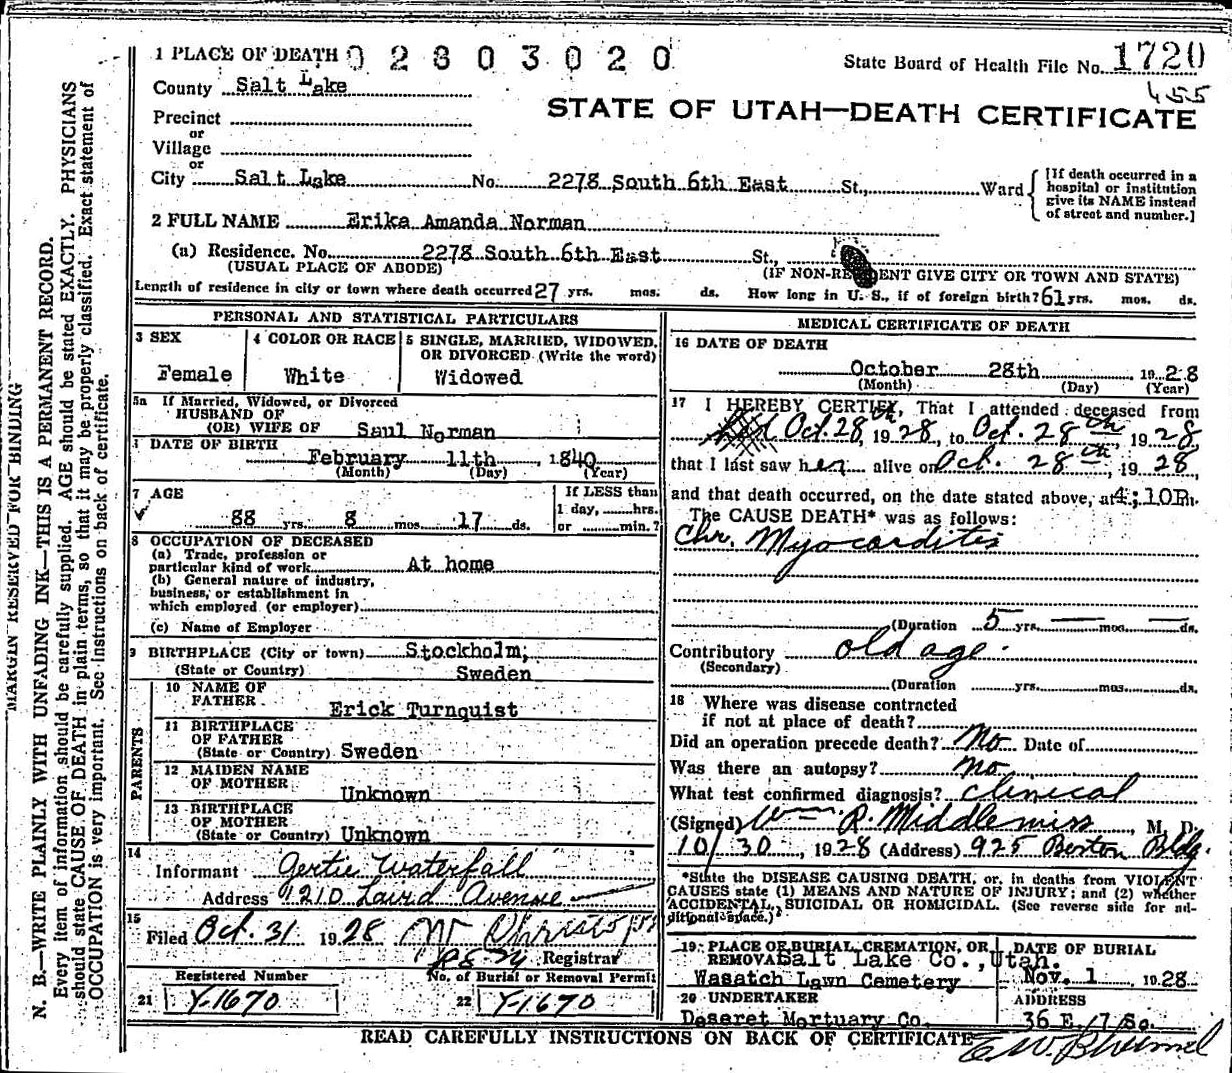 1 PLACE OF DEATH 02803020
State Board of Health File No. 1720
455
County Salt Lake
STATE OF UTAH—DEATH CERTIFICATE
Precinct
or
Village
or
City Salt Lake No. 2278 South 6th East St., Ward
[If death occurred in a hospital or institution give its NAME instead of street and number.]
2 FULL NAME Erika Amanda Norman
(a) Residence. No. 2278 South 6th East St.,
(USUAL PLACE OF ABODE) (IF NON-RESIDENT GIVE CITY OR TOWN AND STATE)
Length of residence in city or town where death occurred 27 yrs. mos. ds. How long in U. S., if of foreign birth? 61 yrs. mos. ds.
PERSONAL AND STATISTICAL PARTICULARS
3 SEX
Female
4 COLOR OR RACE
White
5 SINGLE, MARRIED, WIDOWED, OR DIVORCED (Write the word)
Widowed
5a If Married, Widowed, or Divorced
HUSBAND OF
(OR) WIFE OF Saul Norman
DATE OF BIRTH
February 11th, 1840
(Month) (Day) (Year)
7 AGE
88 yrs. 8 mos. 17 ds.
If LESS than
1 day, hrs.
or min.?
8 OCCUPATION OF DECEASED
(a) Trade, profession or
particular kind of work At home
(b) General nature of industry,
business, or establishment in
which employed (or employer)
(c) Name of Employer
9 BIRTHPLACE (City or town) Stockholm,
(State or Country) Sweden
PARENTS
10 NAME OF
FATHER Erick Turnquist
11 BIRTHPLACE
OF FATHER
(State or Country) Sweden
12 MAIDEN NAME
OF MOTHER Unknown
13 BIRTHPLACE
OF MOTHER
(State or Country) Unknown
14
Informant Gertie Waterfall
Address 1210 Laird Avenue
15
Filed Oct. 31 1928
Registrar
Registered Number
21 Y-1670
No. of Burial or Removal Permit
22 Y-1670
MEDICAL CERTIFICATE OF DEATH
16 DATE OF DEATH
October 28th 1928
(Month) (Day) (Year)
17 I HEREBY CERTIFY, That I attended deceased from
Oct. 28th, 1928, to Oct. 28th, 1928,
that I last saw her alive on Oct. 28th, 1928,
and that death occurred, on the date stated above, at 4:10P.m.
The CAUSE DEATH* was as follows:
Chr. Myocarditis
(Duration 5 yrs. — mos. — ds.
Contributory old age.
(Secondary)
(Duration yrs. mos. ds.
18 Where was disease contracted
if not at place of death?
Did an operation precede death? No Date of
Was there an autopsy? no
What test confirmed diagnosis? Clinical
(Signed) Wm R. Middlemiss, M. D.
10/30, 1928 (Address) 925 Boston Bldg.
*State the DISEASE CAUSING DEATH, or, in deaths from VIOLENT
CAUSES state (1) MEANS AND NATURE OF INJURY; and (2) whether
ACCIDENTAL, SUICIDAL OR HOMICIDAL. (See reverse side for additional space.)
19 PLACE OF BURIAL, CREMATION, OR
REMOVAL Salt Lake Co., Utah.
Wasatch Lawn Cemetery
DATE OF BURIAL
Nov. 1 1928
20 UNDERTAKER
Deseret Mortuary Co.
ADDRESS
36 E. 7 So.
READ CAREFULLY INSTRUCTIONS ON BACK OF CERTIFICATE
MARGIN RESERVED FOR BINDING
N. B.—WRITE PLAINLY WITH UNFADING INK—THIS IS A PERMANENT RECORD.
Every item of information should be carefully supplied. AGE should be stated EXACTLY. PHYSICIANS
should state CAUSE OF DEATH in plain terms, so that it may be properly classified. Exact statement of
OCCUPATION is very important. See instructions on back of certificate.